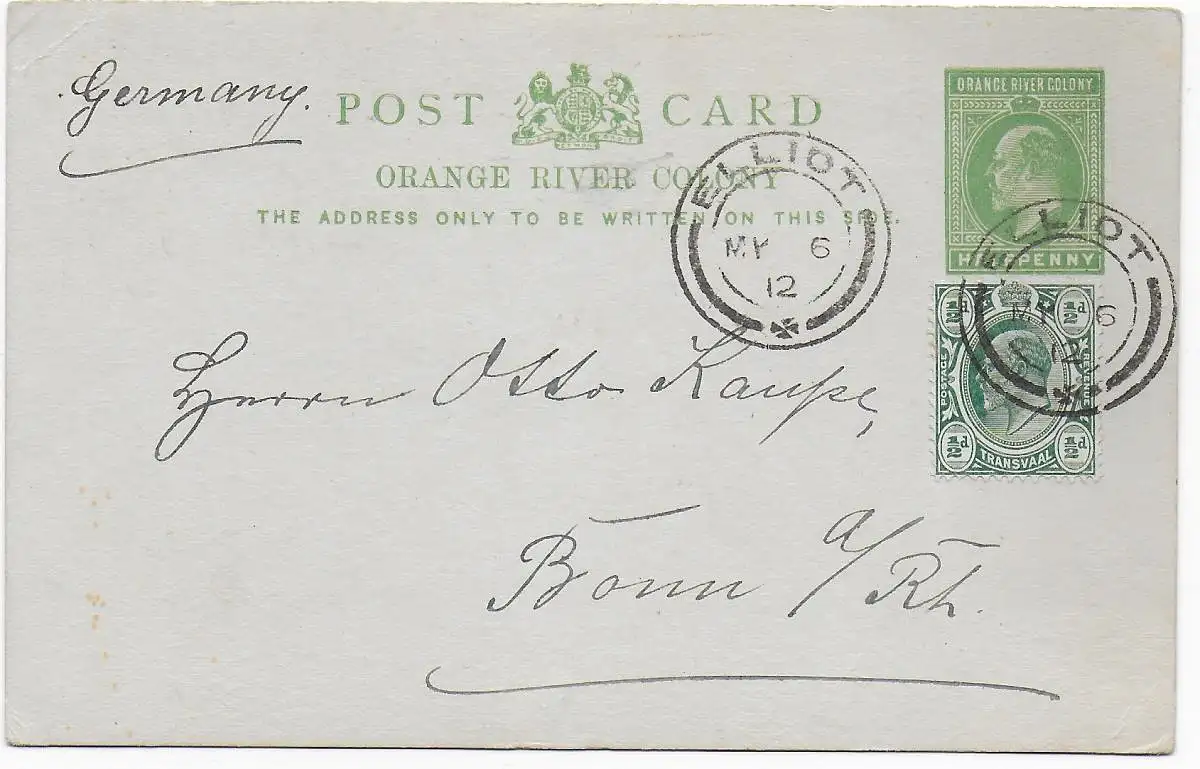 Germany.
POST CARD
ORANGE RIVER COLONY
THE ADDRESS ONLY TO BE WRITTEN ON THIS SIDE.
ORANGE RIVER COLONY
HALFPENNY
ELLIOT
MY 6
12
ELLIOT
MY 6
12
½d ½d
POSTAGE REVENUE
½d ½d
TRANSVAAL
Herrn Otto Kaupe,
Bonn a/Rh.